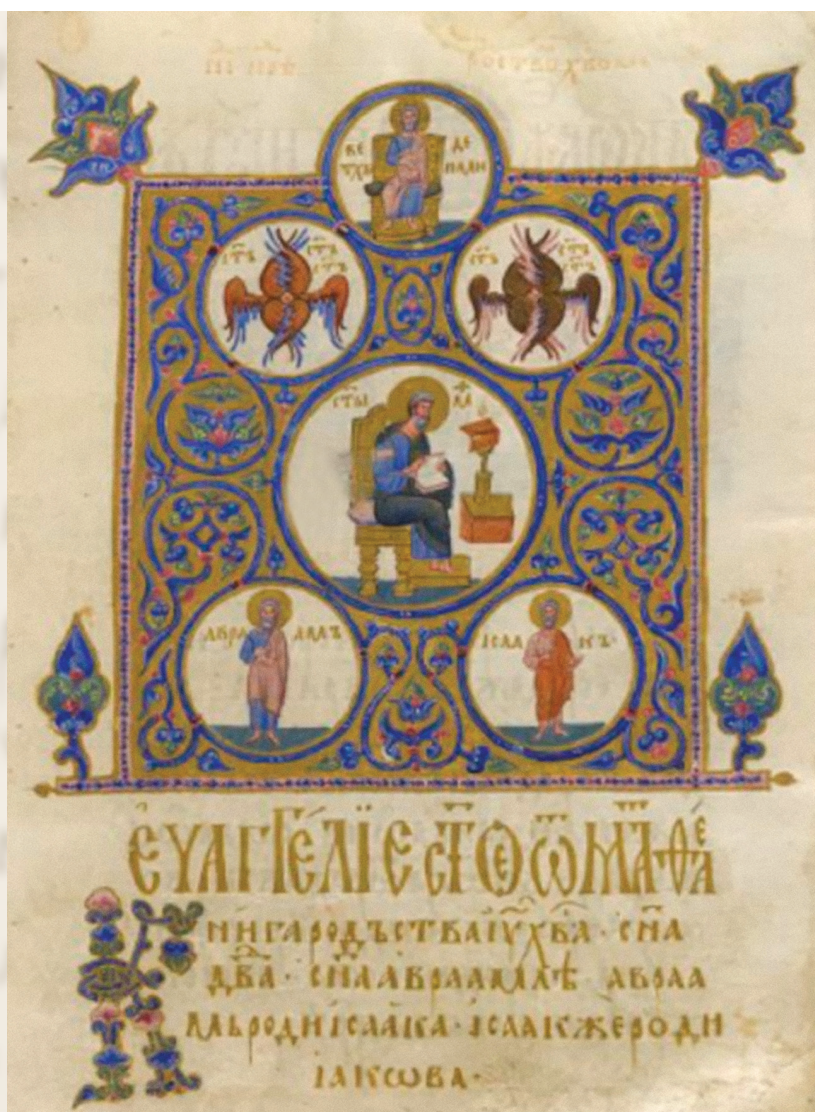 ВЕ ДЕ
ТХЪ НАМИ
СТЪ СТЪ
СТЪ
СТЪ СТЪ
СТЪ
СТЫ
АВРА АМЪ
ІСАА КЪ·
ЄУАГГЕЛІЄ СТ҃ОЄ Ѿ МАТѲЕА
КНИГА РОДЪСТВА ІУ҃ ХВ҃А · СН҃А
ДВ҃А · СН҃А АВРААМЛѢ АВРАА
МЬ РОДИ ІСААКА · ІСААК ЖЕ РОДИ
ІАКѠВА ·